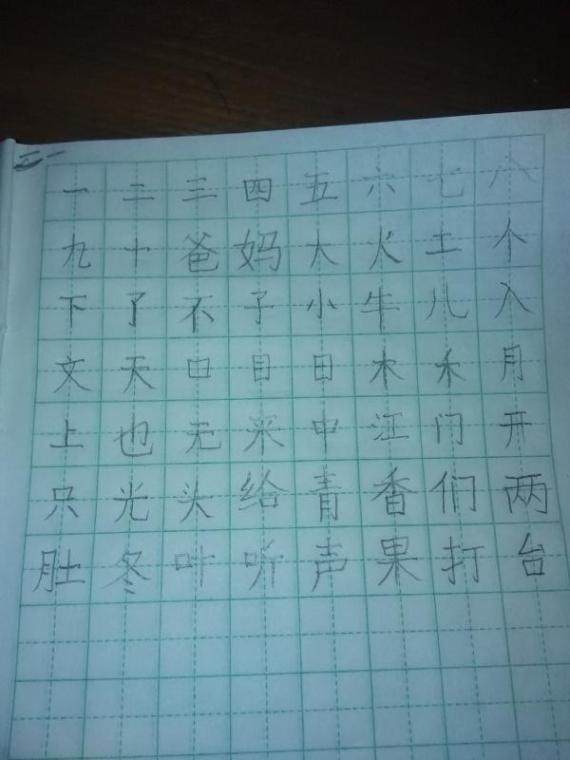 一 二 三 四 五 六 七 八
九 十 爸 妈 大 火 土 个
下 了 不 子 小 牛 儿 入
文 天 口 目 日 木 禾 月
上 也 无 采 中 江 门 开
只 光 头 给 青 香 们 两
肚 冬 叶 听 声 果 打 台